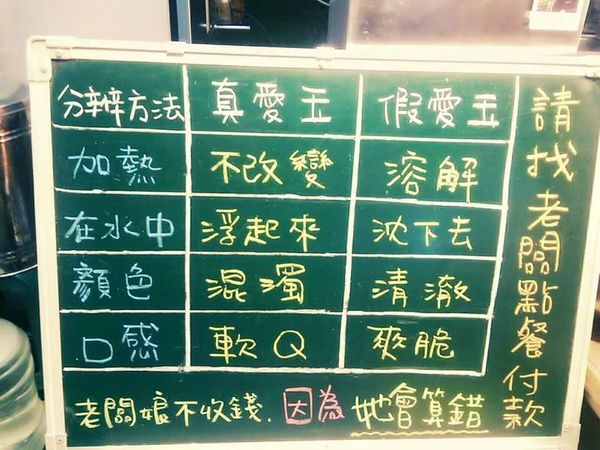 分辨方法 真愛玉 假愛玉
加熱 不改變 溶解
在水中 浮起來 沈下去
顏色 混濁 清澈
口感 軟Q 爽脆
老闆娘不收錢.因為她會算錯
請找老闆點餐付款